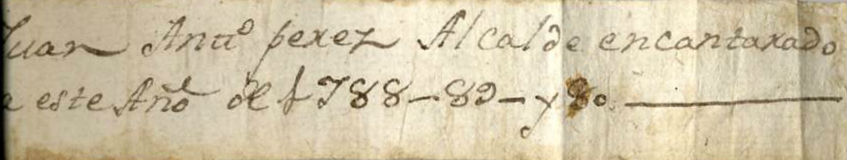 Juan Antto perez Alcalde encantarado
e este Año de 1788-89-y 80